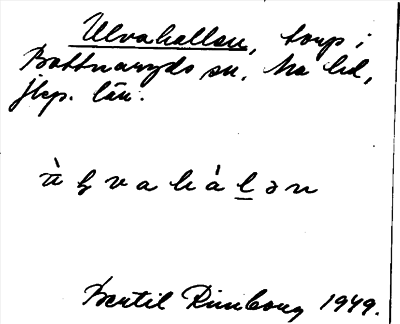 Ulvahallen, torp i
Bottnaryds sn. Mo hd,
jkp. län.
ù ɮ v a h á l ə n
Bertil Rimborg 1949.